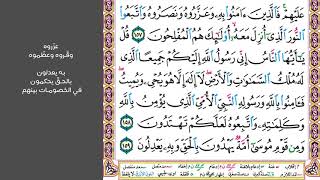 عَلَيْهِمْ فَالَّذِينَ ءَامَنُوا۟ بِهِۦ وَعَزَّرُوهُ وَنَصَرُوهُ وَاتَّبَعُوا۟
النُّورَ الَّذِىٓ أُنزِلَ مَعَهُۥٓ أُو۟لَٰٓئِكَ هُمُ الْمُفْلِحُونَ ١٥٧ قُلْ
يَٰٓأَيُّهَا النَّاسُ إِنِّى رَسُولُ اللَّهِ إِلَيْكُمْ جَمِيعًا الَّذِى
لَهُۥ مُلْكُ السَّمَٰوَٰتِ وَالْأَرْضِ لَآ إِلَٰهَ إِلَّا هُوَ يُحْىِۦ وَيُمِيتُ
فَـَٔامِنُوا۟ بِاللَّهِ وَرَسُولِهِ النَّبِىِّ الْأُمِّىِّ الَّذِى يُؤْمِنُ بِاللَّهِ
وَكَلِمَٰتِهِۦ وَاتَّبِعُوهُ لَعَلَّكُمْ تَهْتَدُونَ ١٥٨
وَمِن قَوْمِ مُوسَىٰٓ أُمَّةٌ يَهْدُونَ بِالْحَقِّ وَبِهِۦ يَعْدِلُونَ ١٥٩
عزروه
وقروه وعظموه
به يعدلون
بالحق يحكمون
في الخصومات بينهم